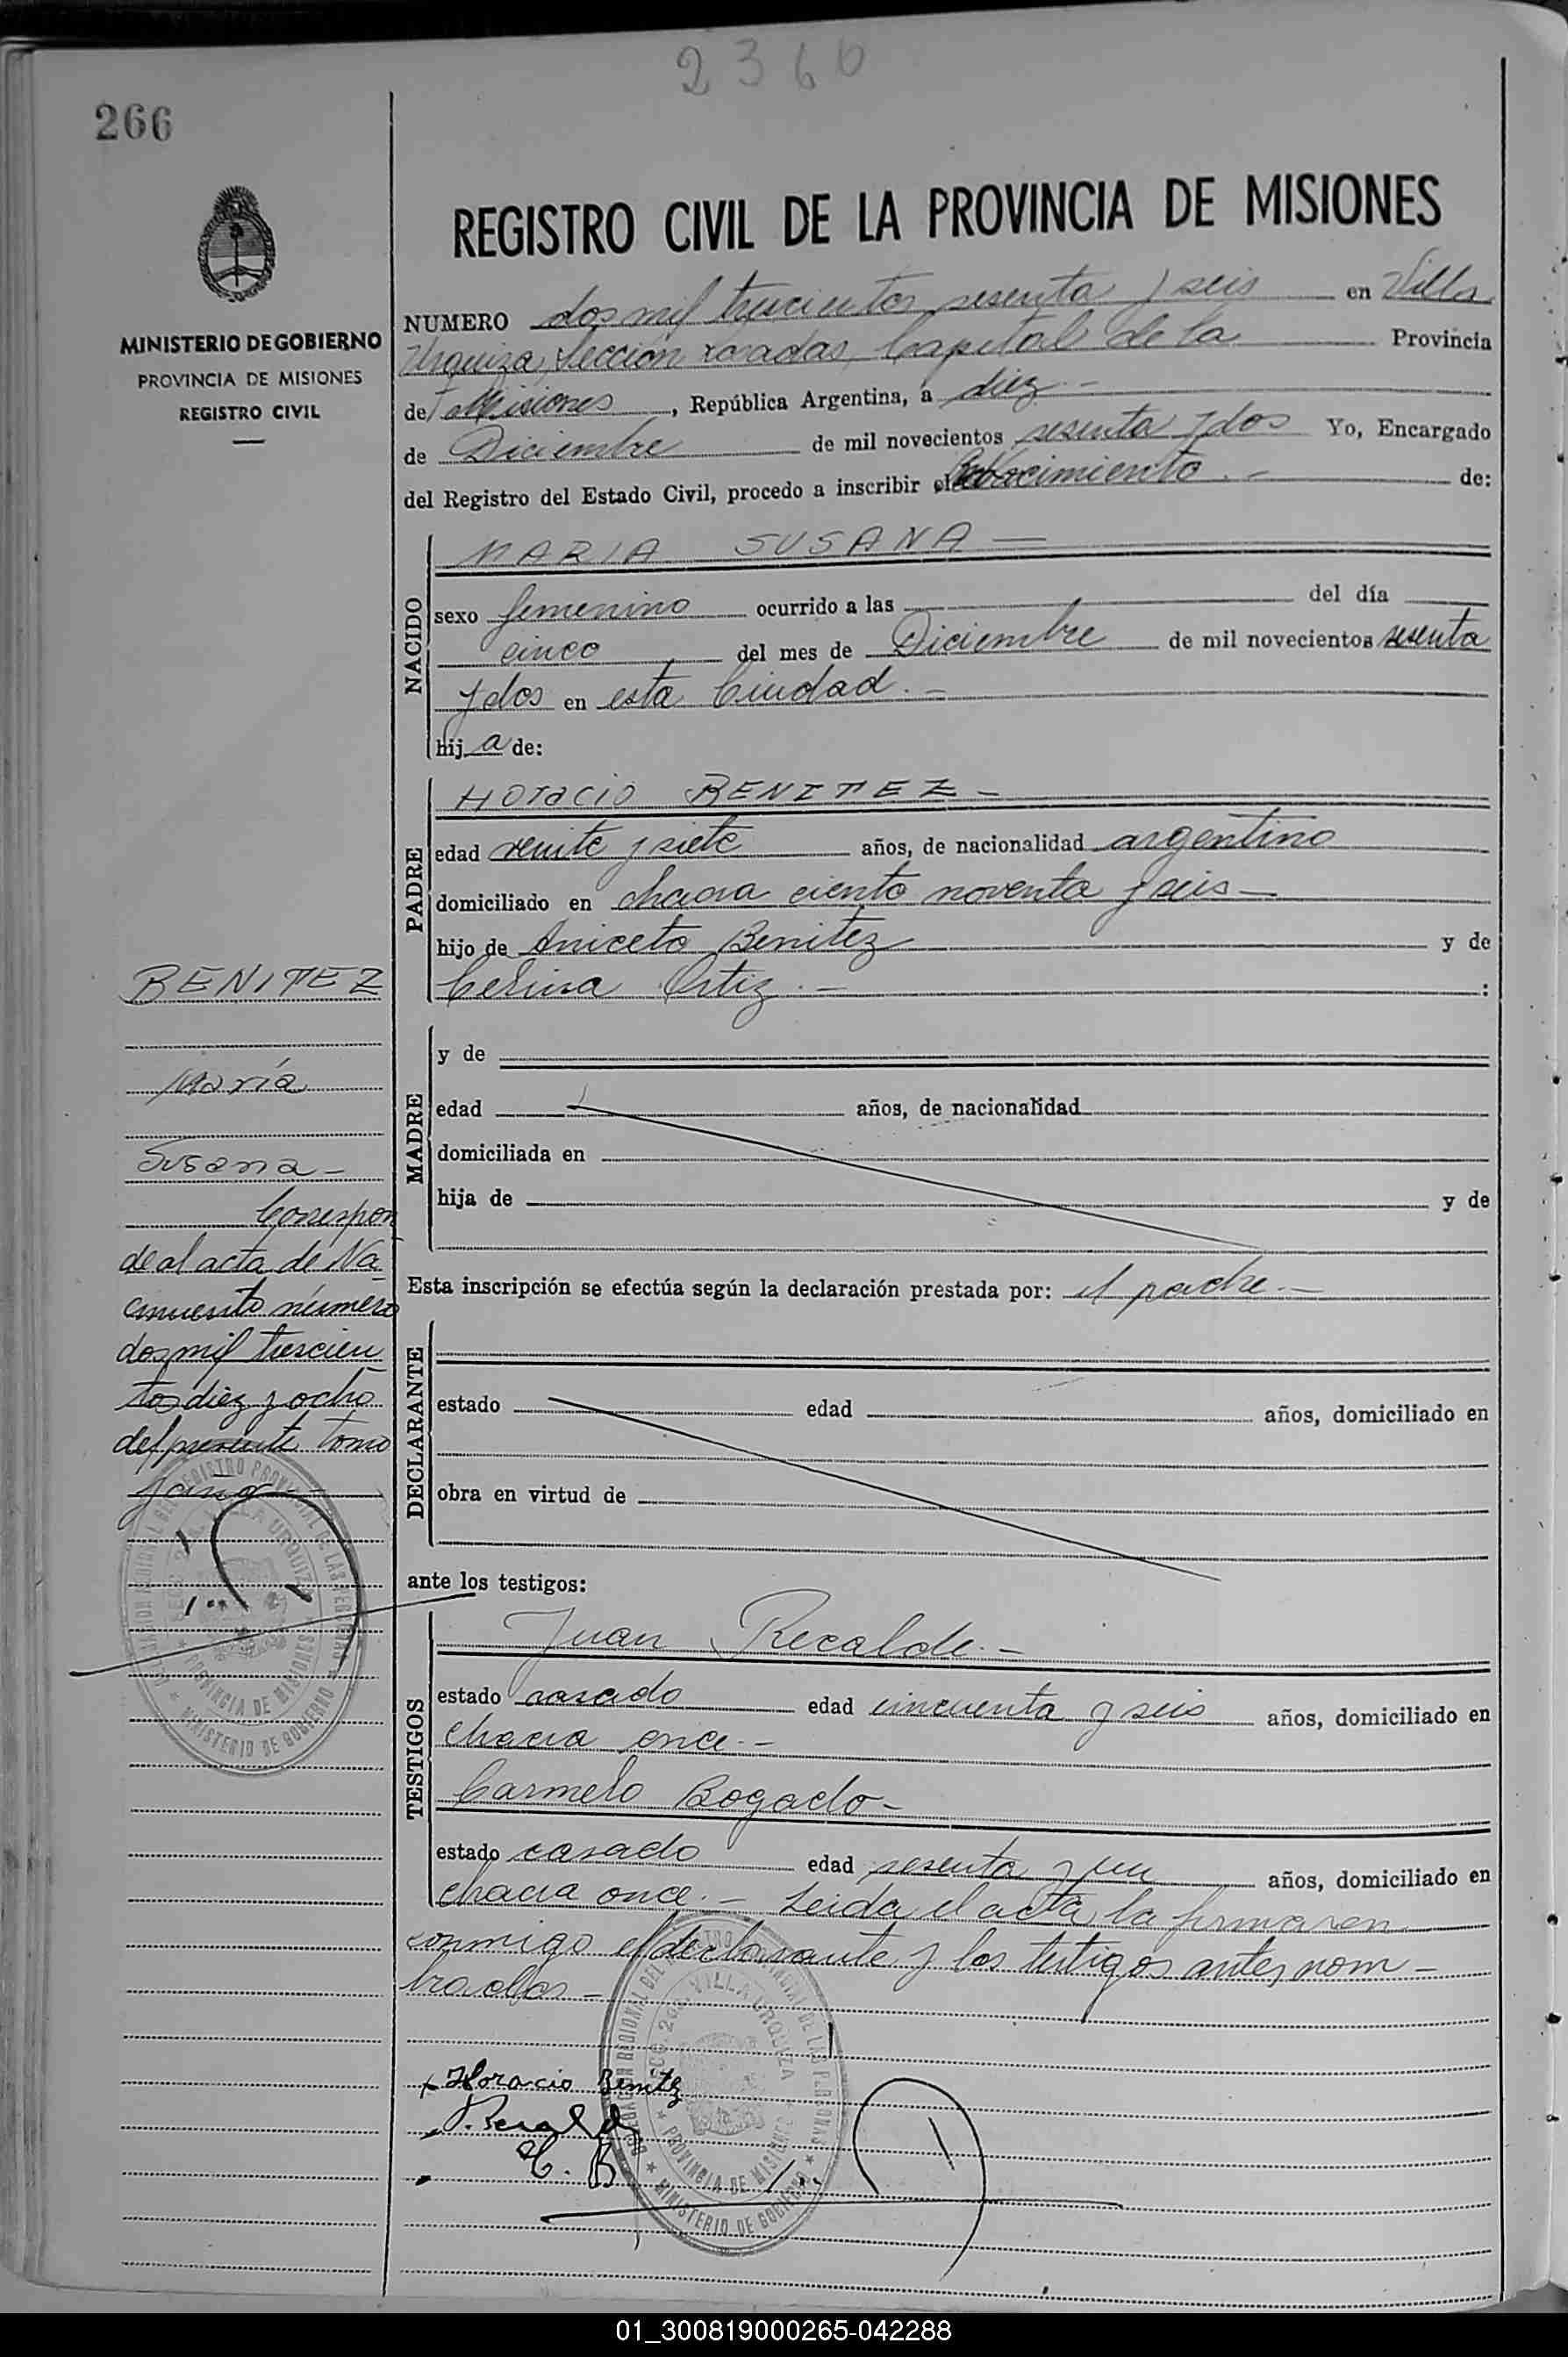 2366
266
MINISTERIO DE GOBIERNO
PROVINCIA DE MISIONES
REGISTRO CIVIL
REGISTRO CIVIL DE LA PROVINCIA DE MISIONES
NUMERO dos mil trescientos sesenta y seis en Villa
Urquiza, Sección Posadas, Capital de la Provincia
de Misiones, República Argentina, a diez -
de Diciembre de mil novecientos sesenta y dos Yo, Encargado
del Registro del Estado Civil, procedo a inscribir el de:
NACIDO
MARIA SUSANA —
sexo femenino ocurrido a las del día
cinco del mes de Diciembre de mil novecientos sesenta
y dos en esta Ciudad. -
hij a de:
PADRE
HORACIO BENITEZ -
edad veinte y siete años, de nacionalidad argentino
domiciliado en chacra ciento noventa y seis -
hijo de Aniceto Benitez y de
Celina Ortiz. - :
MADRE
y de
edad años, de nacionalidad
domiciliada en
hija de y de
Esta inscripción se efectúa según la declaración prestada por: el padre. -
DECLARANTE
estado edad años, domiciliado en
obra en virtud de
ante los testigos:
TESTIGOS
Juan Recalde. -
estado casado edad cincuenta y seis años, domiciliado en
chacra once. -
Carmelo Bogado -
estado casado edad sesenta y un años, domiciliado en
chacra once. - Leida el acta la firmaron
conmigo el declarante y los testigos antes nom-
brados -
Horacio Benitez
C. B
BENITEZ
María
Susana -
Correspon
de al acta de Na-
cimiento número
dos mil trescien
tos diez y ocho
del presente tomo
VILLA URQUIZA
PROVINCIA DE MISIONES
MINISTERIO DE GOBIERNO
VILLA URQUIZA
PROVINCIA DE MISIONES
MINISTERIO DE GOBIERNO
01_300819000265-042288